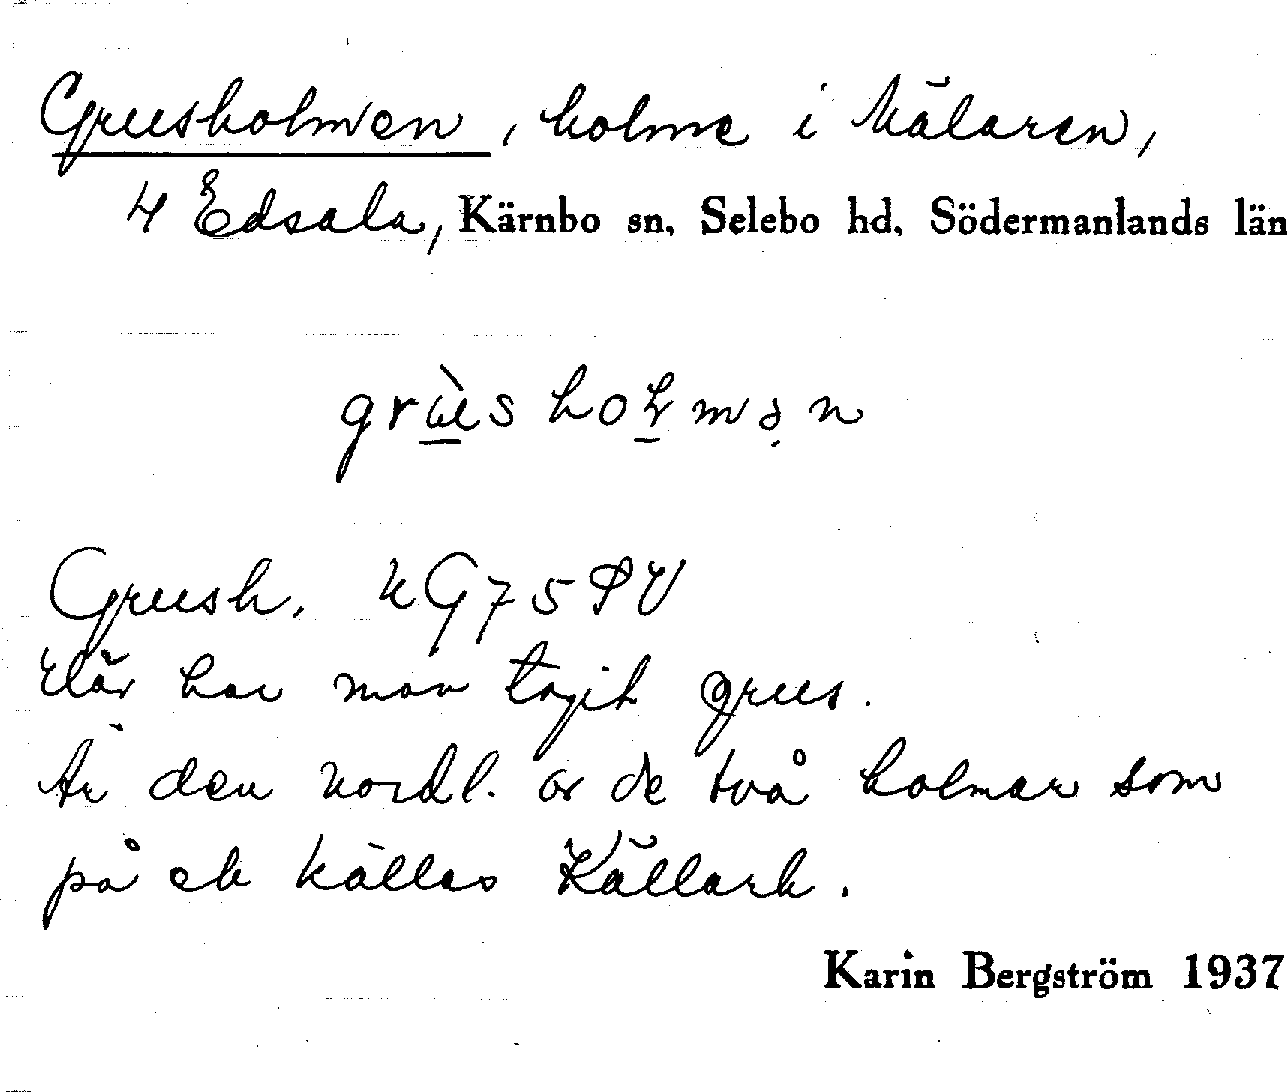 Grusholmen, holme i Mälaren,
4 Edsala, Kärnbo sn, Selebo hd, Södermanlands län
Grush. KG75SV
Där har man tagit grus.
Är den nordl. av de två holmar som
på ek kallas Källarh.
Karin Bergström 1937